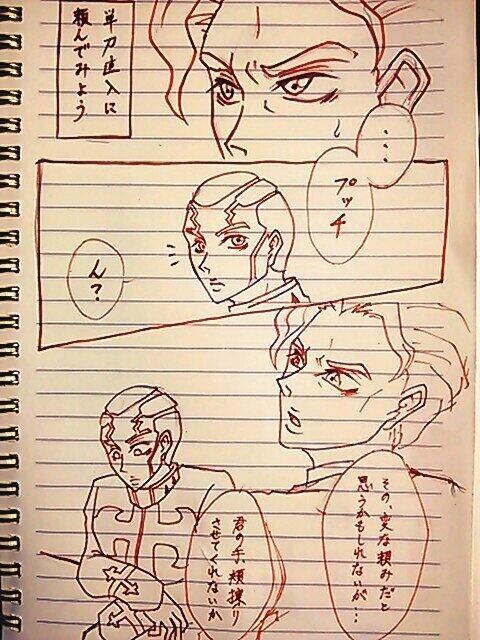 単刀直入に
頼んでみよう
‥‥
プッチ
ん?
その、変な頼みだと
思うかもしれないが…
君の手 頬擦り
させてくれないか